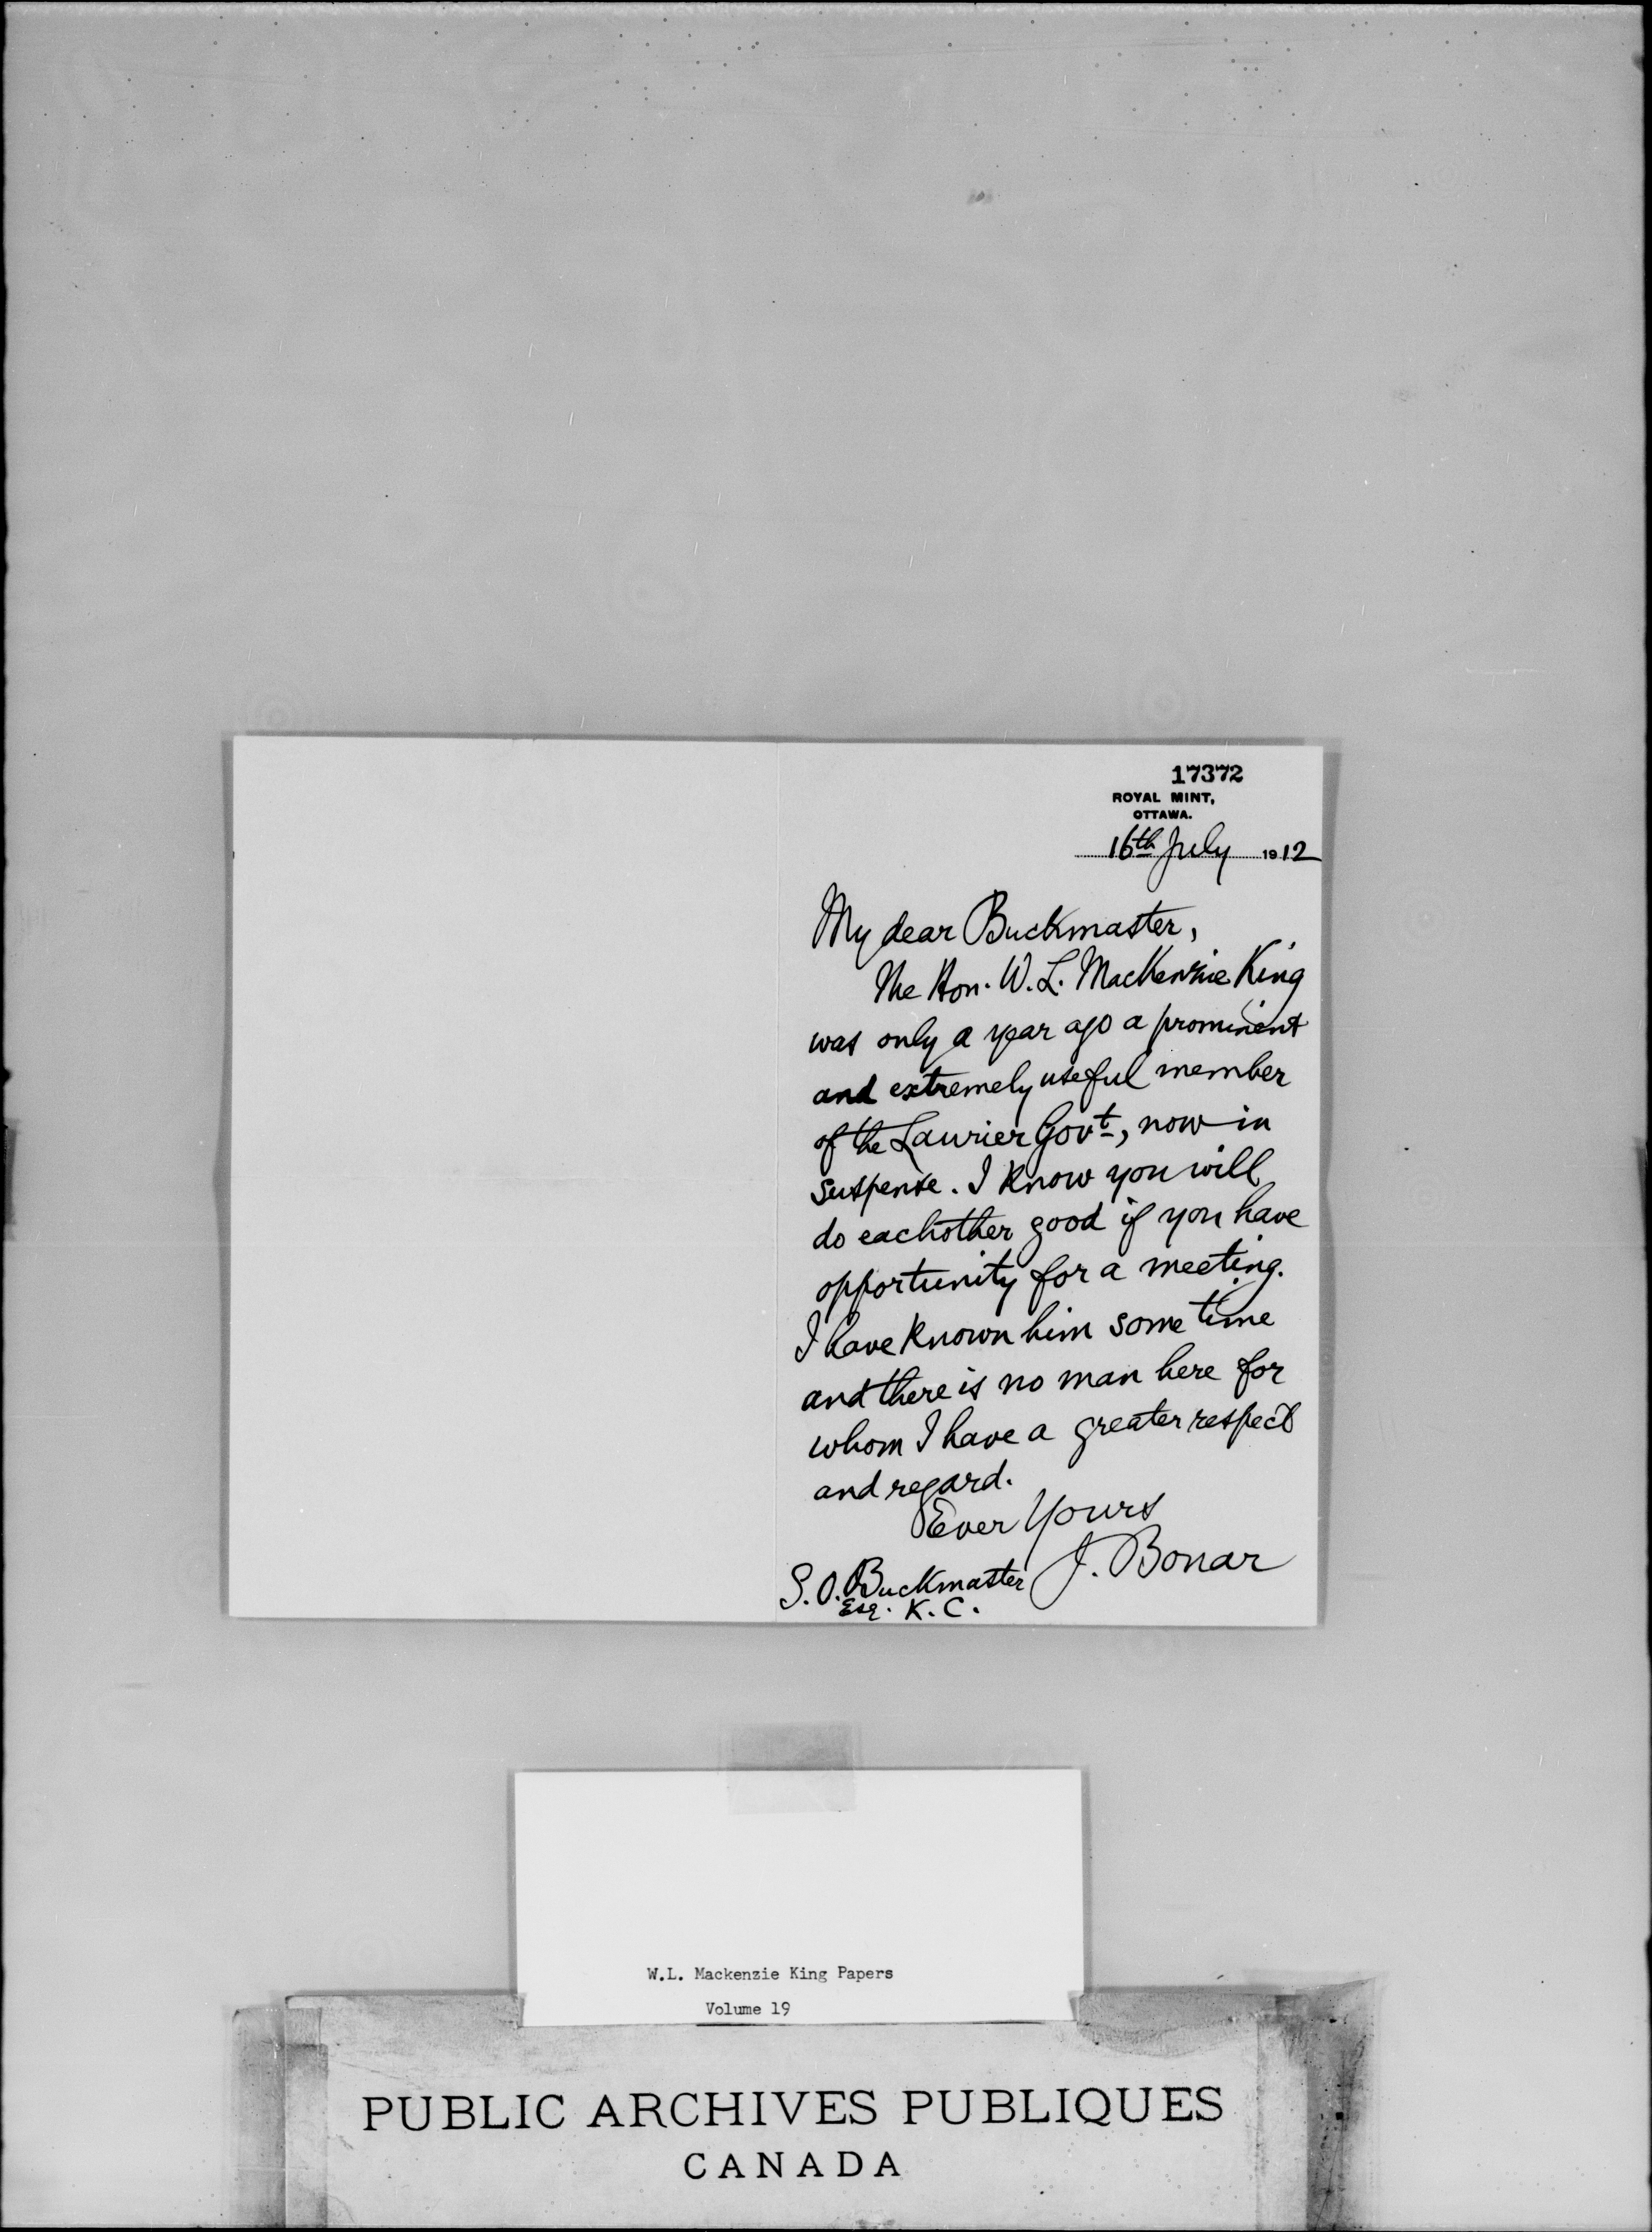 17372
ROYAL MINT,
OTTAWA.
16th July 1912
My dear Buckmaster,
The Hon. W. L. MacKenzie King
was only a year ago a prominent
and extremely useful member
of the Laurier Govt, now in
suspense. I know you will
do eachother good if you have
opportunity for a meeting.
I have known him some time
and there is no man here for
whom I have a greater respect
and regard.
Ever Yours
J. Bonar
S. O. Buckmaster
Esq. K. C.
W.L. Mackenzie King Papers
Volume 19
PUBLIC ARCHIVES PUBLIQUES
CANADA